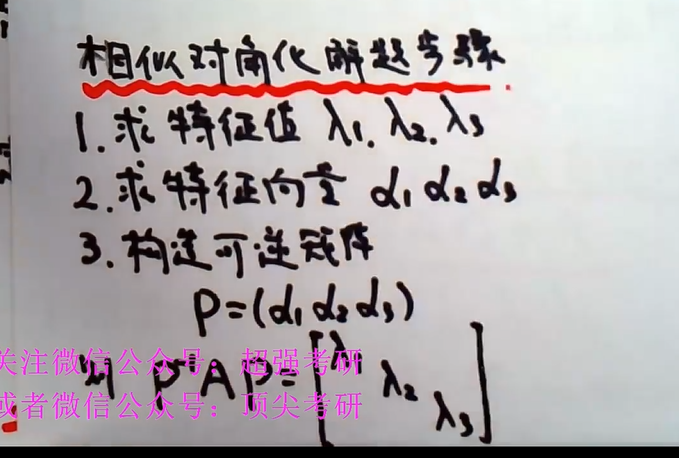 相似对角化解题步骤
1. 求特征值 λ₁. λ₂. λ₃
2. 求特征向量 α₁ α₂ α₃
3. 构造可逆矩阵
P=(α₁ α₂ α₃)
则 P⁻¹AP=[λ₁ λ₂ λ₃]
关注微信公众号：超强考研
或者微信公众号：顶尖考研